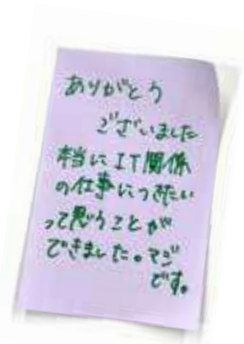 ありがとう
ございました
本当にIT関係
の仕事につきたい
って思うことが
できました。マジ
です。